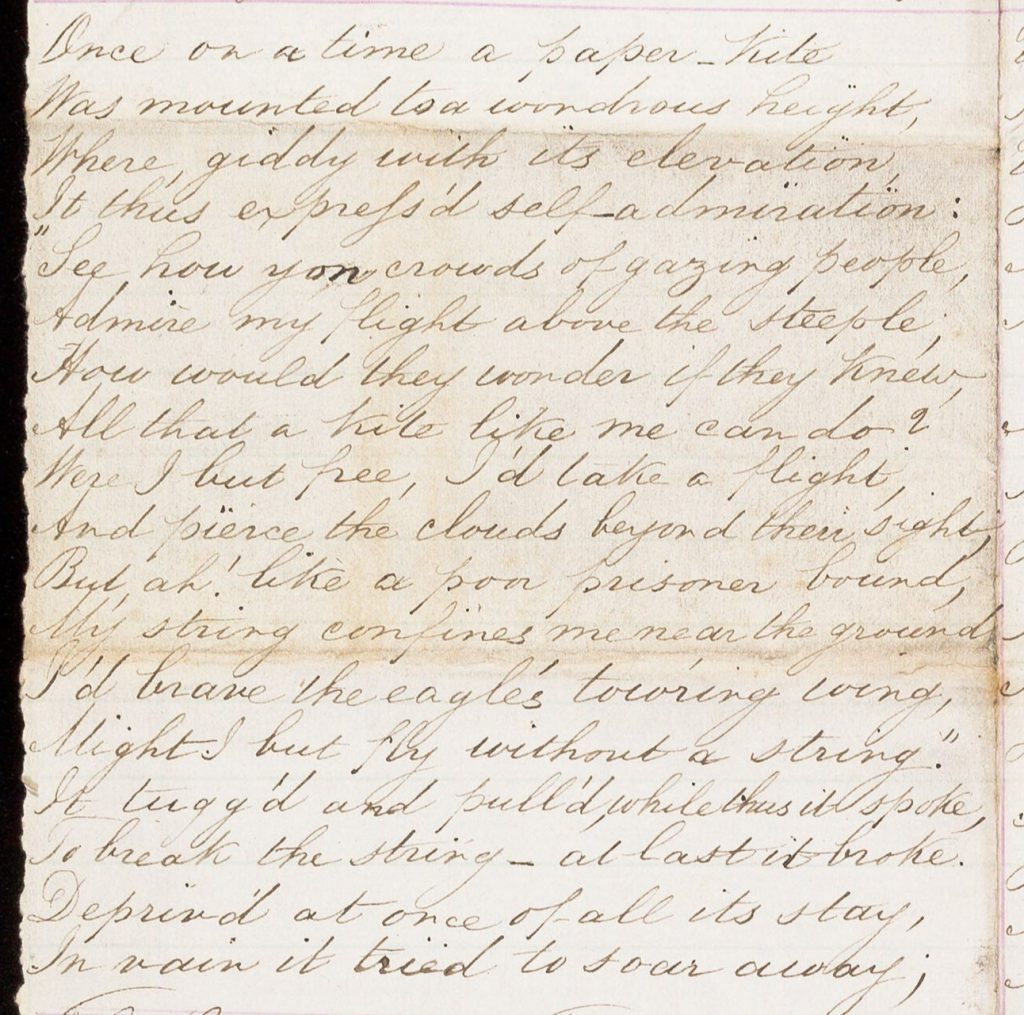 Once on a time a paper-kite
Was mounted to a wondrous height,
Where, giddy with its elevation,
It thus expreſs'd self-admiration:
"See how yon crowds of gazing people,
Admire my flight above the steeple;
How would they wonder if they knew,
All that a kite like me can do?
Were I but free, I'd take a flight,
And pierce the clouds beyond their sight,
But, ah! like a poor prisoner bound,
My string confines me near the ground
I'd brave the eagle's tow'ring wing,
Might I but fly without a string."
It tugg'd and pull'd, while thus it spoke,
To break the string - at last it broke.
Depriv'd at once of all its stay,
In vain it tried to soar away;